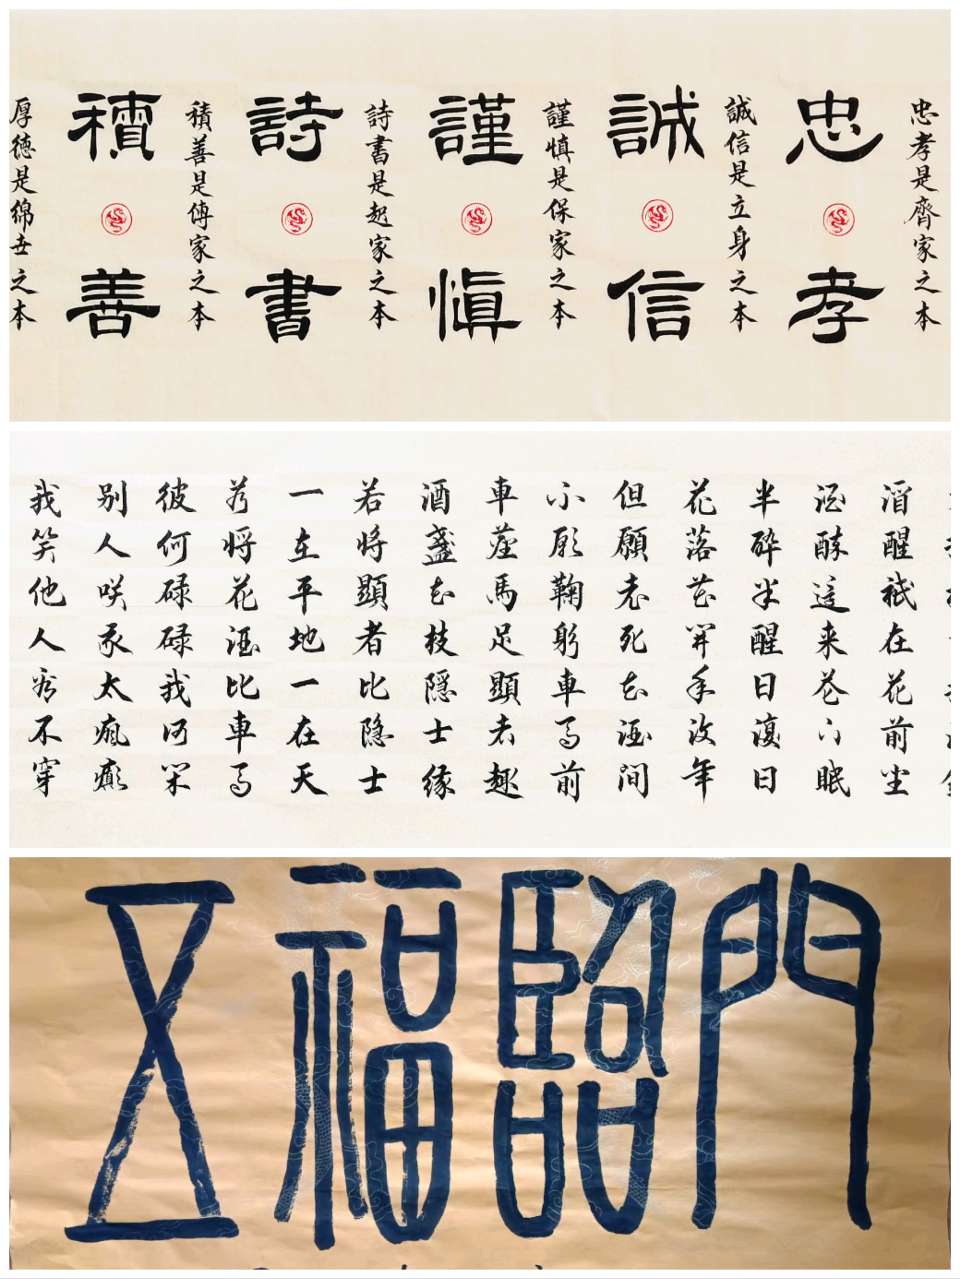 忠孝是齊家之本
忠孝
誠信是立身之本
誠信
謹慎是保家之本
謹慎
詩書是起家之本
詩書
積善是傳家之本
積善
厚德是綿世之本
酒醒祇在花前坐
酒醉還来花下眠
半醉半醒日復日
花落花開年復年
但願老死花酒間
不願鞠躬車馬前
車塵馬足顯者趣
酒盞花枝隱士緣
若将顯者比隱士
一在平地一在天
若将花酒比車馬
彼何碌碌我何閑
别人咲我太瘋癲
我笑他人看不穿
五福臨門